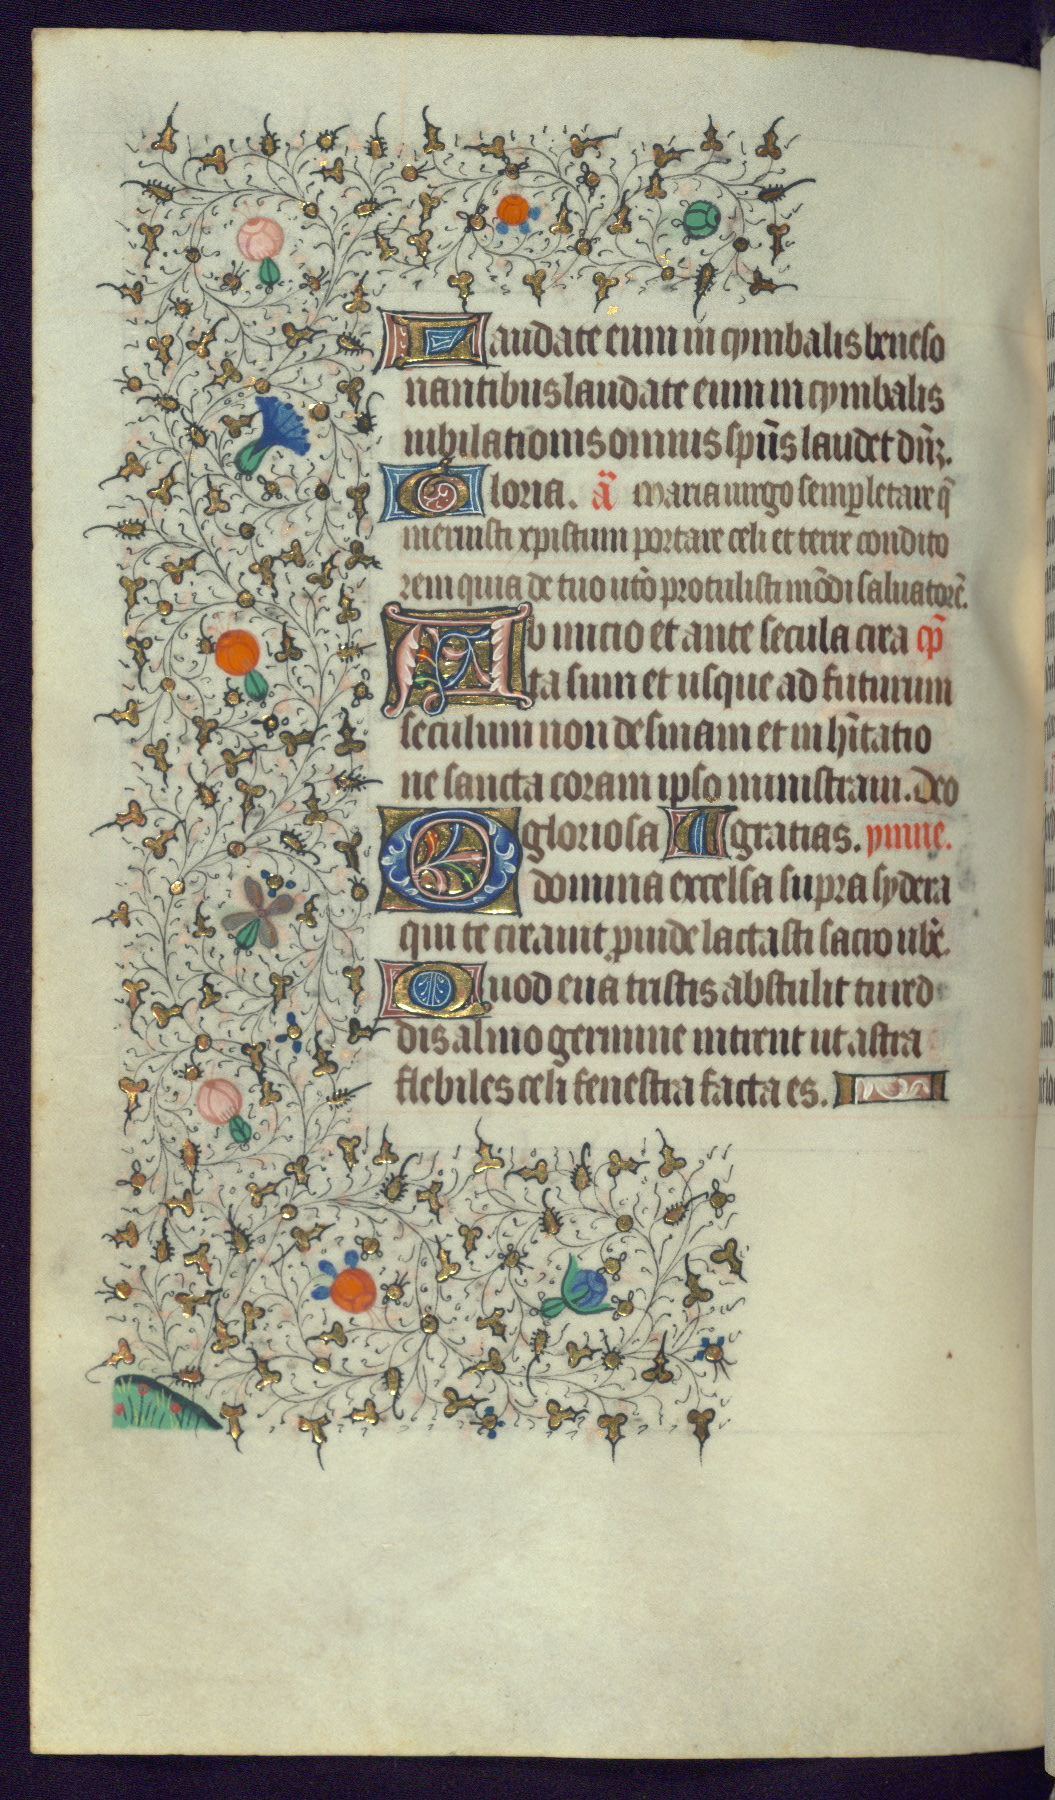 Laudate eum in cymbalis beneso
nantibus laudate eum in cymbalis
iubilationis omnis sp̄us laudet dn̄ꝫ.
Gloria. ā Maria uirgo semꝑ letare q̄
meruisti xpistum portare celi et terre condito
rem quia de tuo utō protulisti mōdi saluatorē.
Ab inicio et ante secula crea cp̄
ta sum et usque ad futurum
seculum non desinam et in hītatio
ne sancta coram ipso ministraui. Deo
O gloriosa gratias. ymne.
domina excelsa supra sydera
qui te creauit ꝓuide lactasti sacro ube.
Quod eua tristis abstulit tu red
dis almo germine intrent ut astra
flebiles celi fenestra facta es.